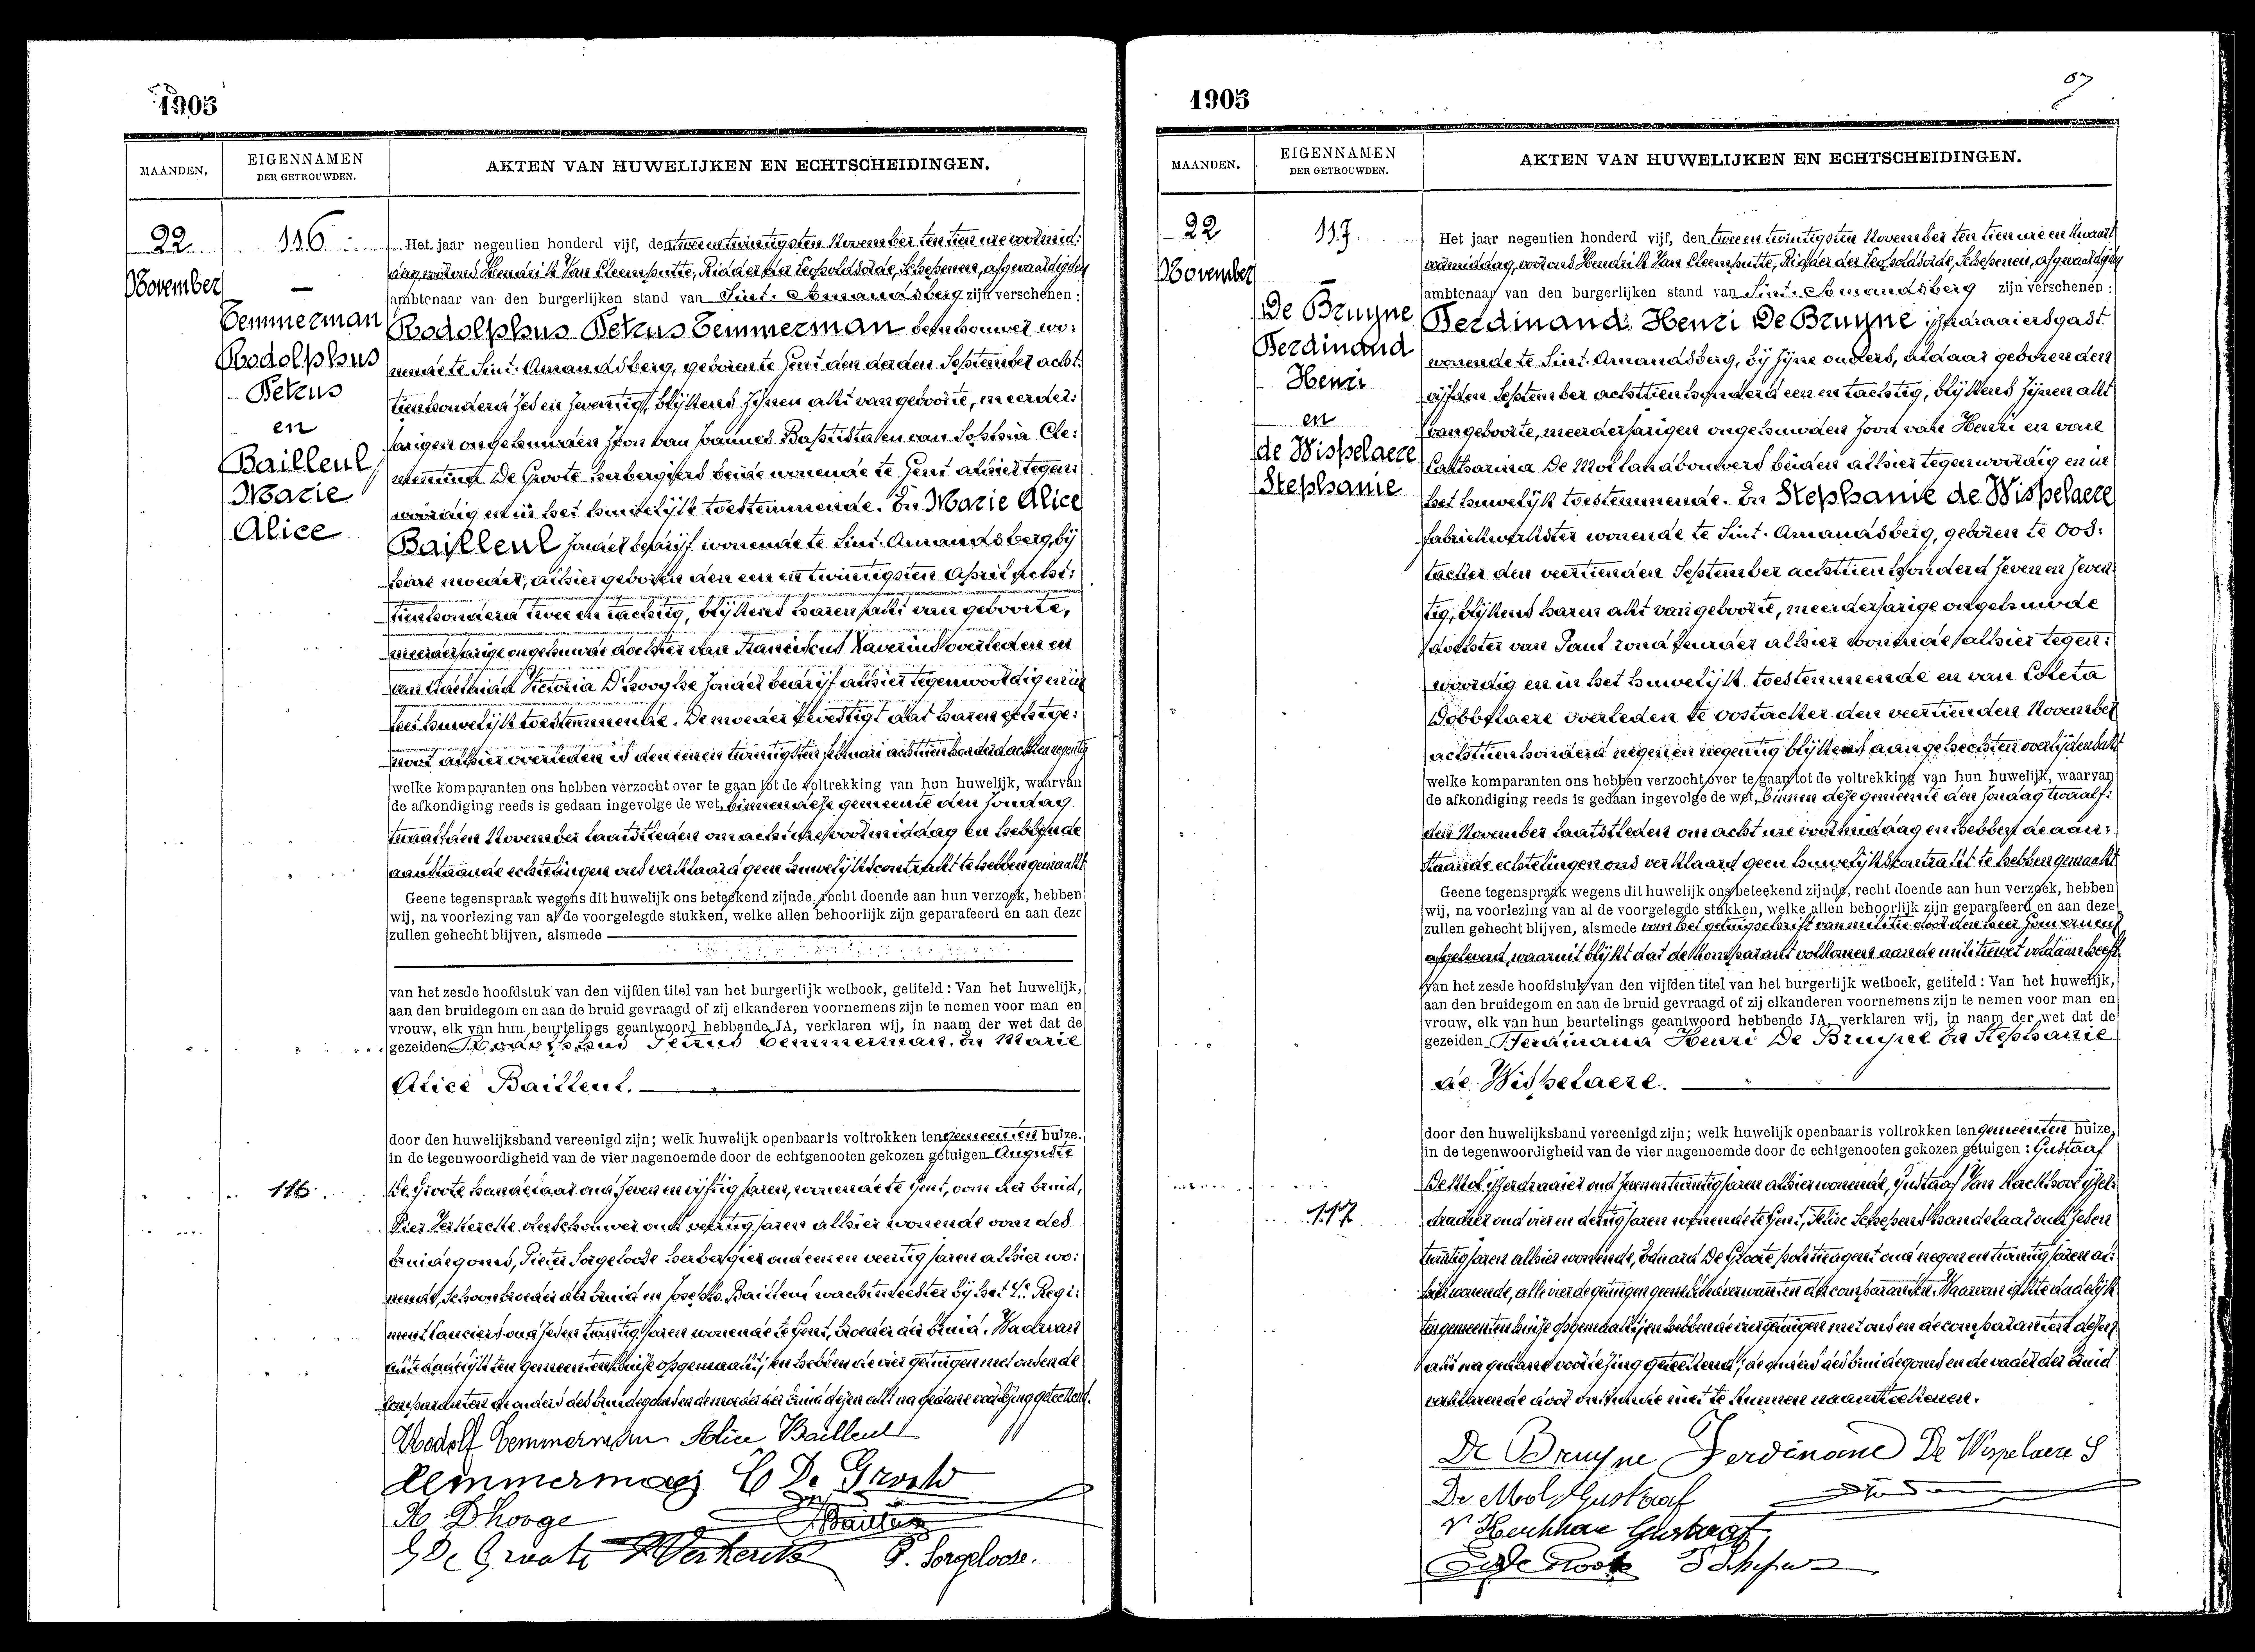 1905
MAANDEN.
EIGENNAMEN
DER GETROUWDEN.
AKTEN VAN HUWELIJKEN EN ECHTSCHEIDINGEN.
22
November
116
Temmerman
Rodolphus
Petrus
en
Bailleul
Marie
Alice
Het jaar negentien honderd vijf, den twee en twintigsten November ten tien ure voormid:
dag voor ons Hendrik Van Cleemputte, Ridder der Leopoldsorde, Schepenen, afgevaardigden
ambtenaar van den burgerlijken stand van Sint-Amandsberg zijn verschenen:
Rodolphus Petrus Temmerman wo:
nende te Sint-Amandsberg, geboren te Gent den derden September acht:
tienhonderd zes en zeventig, blijkens zijnen akt van geboorte, meerder:
jarigen ongehuwden zoon van Joannes Baptista en van Sophia Cle:
mentina De Groote herbergiers beide wonende te Gent alhier tegen:
woordig en in het huwelijk toestemmende. En Marie Alice
Bailleul zonder bedrijf wonende te Sint-Amandsberg, bij
hare moeder, alhier geboren den een en twintigsten April acht:
tienhonderd twee en tachtig, blijkens haren akt van geboorte,
meerderjarige ongehuwde dochter van Franciscus Xaverius overleden en
van Victoria D'hooghe zonder bedrijf alhier tegenwoordig en in
het huwelijk toestemmende. De moeder bevestigt dat haren echtge:
noot alhier overleden is den eenen twintigsten achttienhonderd acht en negentig
welke komparanten ons hebben verzocht over te gaan tot de voltrekking van hun huwelijk, waarvan
de afkondiging reeds is gedaan ingevolge de wet, binnen deze gemeente den zondag
twaalfden November laatstleden om acht ure voormiddag en hebbende
aanstaande echtelingen ons verklaard geen huwelijkscontrakt te hebben gemaakt
Geene tegenspraak wegens dit huwelijk ons beteekend zijnde, recht doende aan hun verzoek, hebben
wij, na voorlezing van al de voorgelegde stukken, welke allen behoorlijk zijn geparafeerd en aan deze
zullen gehecht blijven, alsmede
van het zesde hoofdstuk van den vijfden titel van het burgerlijk wetboek, getiteld: Van het huwelijk,
aan den bruidegom en aan de bruid gevraagd of zij elkanderen voornemens zijn te nemen voor man en
vrouw, elk van hun beurtelings geantwoord hebbende JA, verklaren wij, in naam der wet dat de
gezeiden Rodolphus Petrus Temmerman. En Marie
Alice Bailleul.
door den huwelijksband vereenigd zijn; welk huwelijk openbaar is voltrokken ten gemeenten huize.
in de tegenwoordigheid van de vier nagenoemde door de echtgenooten gekozen getuigen Auguste
116.
De Groote handelaar oud zeven en vijftig jaren, wonende te Gent, oom der bruid,
Pier Verkercke oud veertig jaren alhier wonende oom des
bruidegoms, Pieter Sorgeloose herbergier oud een en veertig jaren alhier wo:
nende, schoonbroeder der bruid en Joseph Bailleul wachtmeester bij het Regi:
ment lanciers oud zesen twintig jaren wonende te Gent, broeder der bruid. Waarvan
akte dadelijk ten gemeenten huize opgemaakt, en hebben de vier getuigen met ons en de
komparanten de ouders des bruidegoms en de moeder der bruid dezen akt na gedane voorlezing geteekend.
Rodolf Temmerman Alice Bailleul
Temmerman De Groote
D'hooge Bailleul
De Groote Verkercke P. Sorgeloose.
1905
67
MAANDEN.
EIGENNAMEN
DER GETROUWDEN.
AKTEN VAN HUWELIJKEN EN ECHTSCHEIDINGEN.
22
November
117.
De Bruyne
Ferdinand
Henri
en
de Wispelaere
Stephanie
Het jaar negentien honderd vijf, den twee en twintigsten November ten tien ure en kwart
voormiddag, voor ons Hendrik Van Cleemputte, Ridder der Leopoldsorde, Schepenen, afgevaardigden
ambtenaar van den burgerlijken stand van Sint-Amandsberg zijn verschenen:
Ferdinand Henri De Bruyne ijzerdraaiersgast
wonende te Sint-Amandsberg, bij zijne ouders, aldaar geboren den
vijfden September achttienhonderd een en tachtig, blijkens zijnen akt
van geboorte, meerderjarigen ongehuwden zoon van Henri en van
Catharina De Mol landbouwers beiden alhier tegenwoordig en in
het huwelijk toestemmende. En Stephanie de Wispelaere
fabriekwerkster wonende te Sint-Amandsberg, geboren te Oos:
tacker den veertienden September achttienhonderd zeven en zeven:
tig, blijkens haren akt van geboorte, meerderjarige ongehuwde
dochter van alhier wonende alhier tegen:
woordig en in het huwelijk toestemmende en van Coleta
Dobbelaere overleden te Oostacker den veertienden November
achttienhonderd negen en negentig blijkens aangehechten overlijdensakt
welke komparanten ons hebben verzocht over te gaan tot de voltrekking van hun huwelijk, waarvan
de afkondiging reeds is gedaan ingevolge de wet, binnen deze gemeente den zondag twaalf:
den November laatstleden om acht ure voormiddag en hebbende aan:
staande echtelingen ons verklaard geen huwelijkskontrakt te hebben gemaakt
Geene tegenspraak wegens dit huwelijk ons beteekend zijnde, recht doende aan hun verzoek, hebben
wij, na voorlezing van al de voorgelegde stukken, welke allen behoorlijk zijn geparafeerd en aan deze
zullen gehecht blijven, alsmede van het getuigschrift van militie door den heer Gouverneur
afgeleverd, waaruit blijkt dat de komparant volkomen aan de militiewet voldaan heeft
van het zesde hoofdstuk van den vijfden titel van het burgerlijk wetboek, getiteld: Van het huwelijk,
aan den bruidegom en aan de bruid gevraagd of zij elkanderen voornemens zijn te nemen voor man en
vrouw, elk van hun beurtelings geantwoord hebbende JA, verklaren wij, in naam der wet dat de
gezeiden Ferdinand Henri De Bruyne en Stephanie
de Wispelaere.
door den huwelijksband vereenigd zijn; welk huwelijk openbaar is voltrokken ten gemeenten huize,
in de tegenwoordigheid van de vier nagenoemde door de echtgenooten gekozen getuigen: Gustaaf
117.
De Mol ijzerdraaier oud zevenentwintig jaren alhier wonende, Gustaaf Van Kerkhove ijzer:
draaier oud vier en dertig jaren wonende te Gent, Schepens handelaar oud zesen
twintig jaren alhier wonende, Eduard De Groote politieagent oud negen en twintig jaren al:
hier wonende, alle vier de getuigen geene bloedverwanten der comparanten. Waarvan akte dadelijk
ten gemeenten huize opgemaakt, en hebben de vier getuigen met ons en de comparanten dezen
akt na gedane voorlezing geteekend; de ouders des bruidegoms en de vader der bruid
verklarende door onkunde niet te kunnen naamteekenen.
De Bruyne Ferdinand De Wispelaere S
De Mol Gustaaf
V Kerkhove Gustaaf
De Groote Schepens